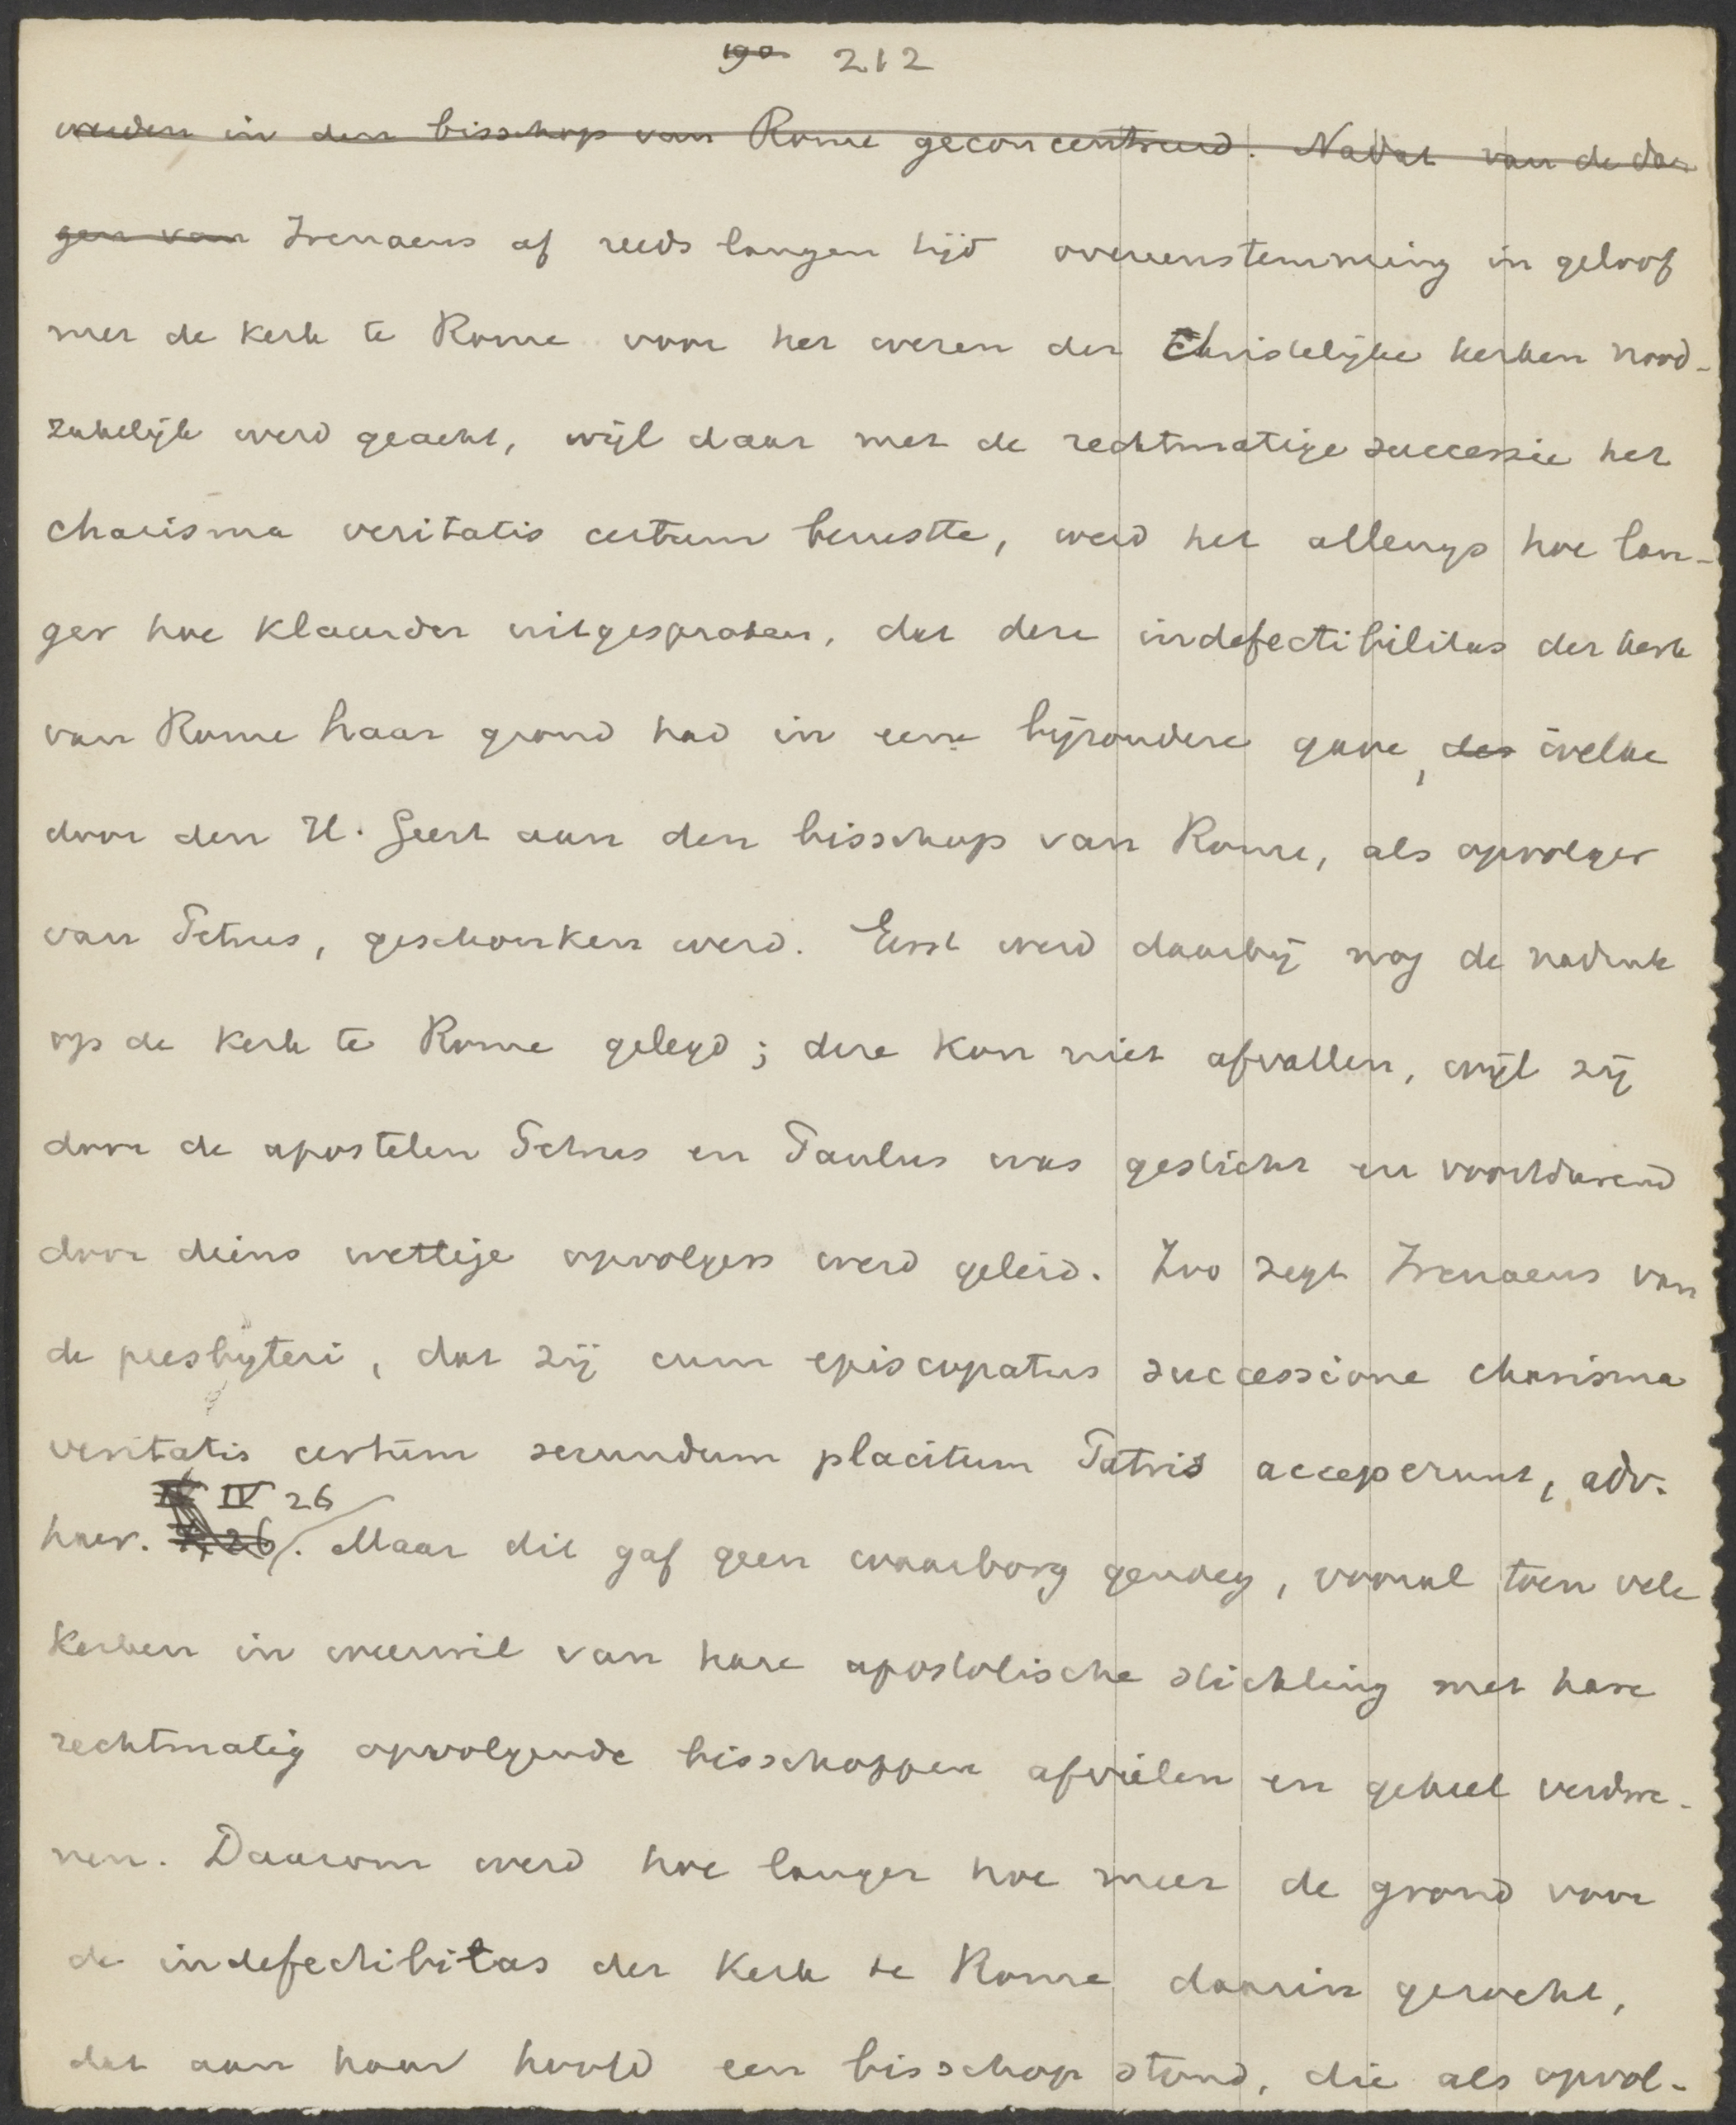 190 212
werden in den bisschop van Rome geconcentreerd. Nadat van de da-
gen van Irenaeus af reeds langen tijd overeenstemming in geloof
met de kerk te Rome voor het wezen der Christelijke kerken nood-
zakelijk werd geacht, wijl daar met de rechtmatige successie het
charisma veritatis certum berustte, werd het allengs hoe lan-
ger hoe klaarder uitgesproken, dat deze indefectibilitas der kerk
van Rome haar grond had in eene bijzondere gave, des welke
door den H. Geest aan den bisschop van Rome, als opvolger
van Petrus, geschonken werd. Eerst werd daarbij nog de nadruk
op de kerk te Rome gelegd; deze kon niet afvallen, wijl zij
door de apostelen Petrus en Paulus was gesticht en voortdurend
door diens wettige opvolgers werd geleid. Zoo zegt Irenaeus van
de presbyteri, dat zij cum episcopatus successione charisma
veritatis certum secundum placitum Patris acceperunt, adv.
IV 26
haer. 26. Maar dit gaf geen waarborg genoeg, vooral toen vele
kerken in weerwil van hare apostolische stichting met hare
rechtmatig opvolgende bisschoppen afvielen en geheel verdwe-
nen. Daarom werd hoe langer hoe meer de grond voor
de indefectibilitas der kerk te Rome daarin gezocht,
dat aan haar hoofd een bisschop stond, die als opvol-